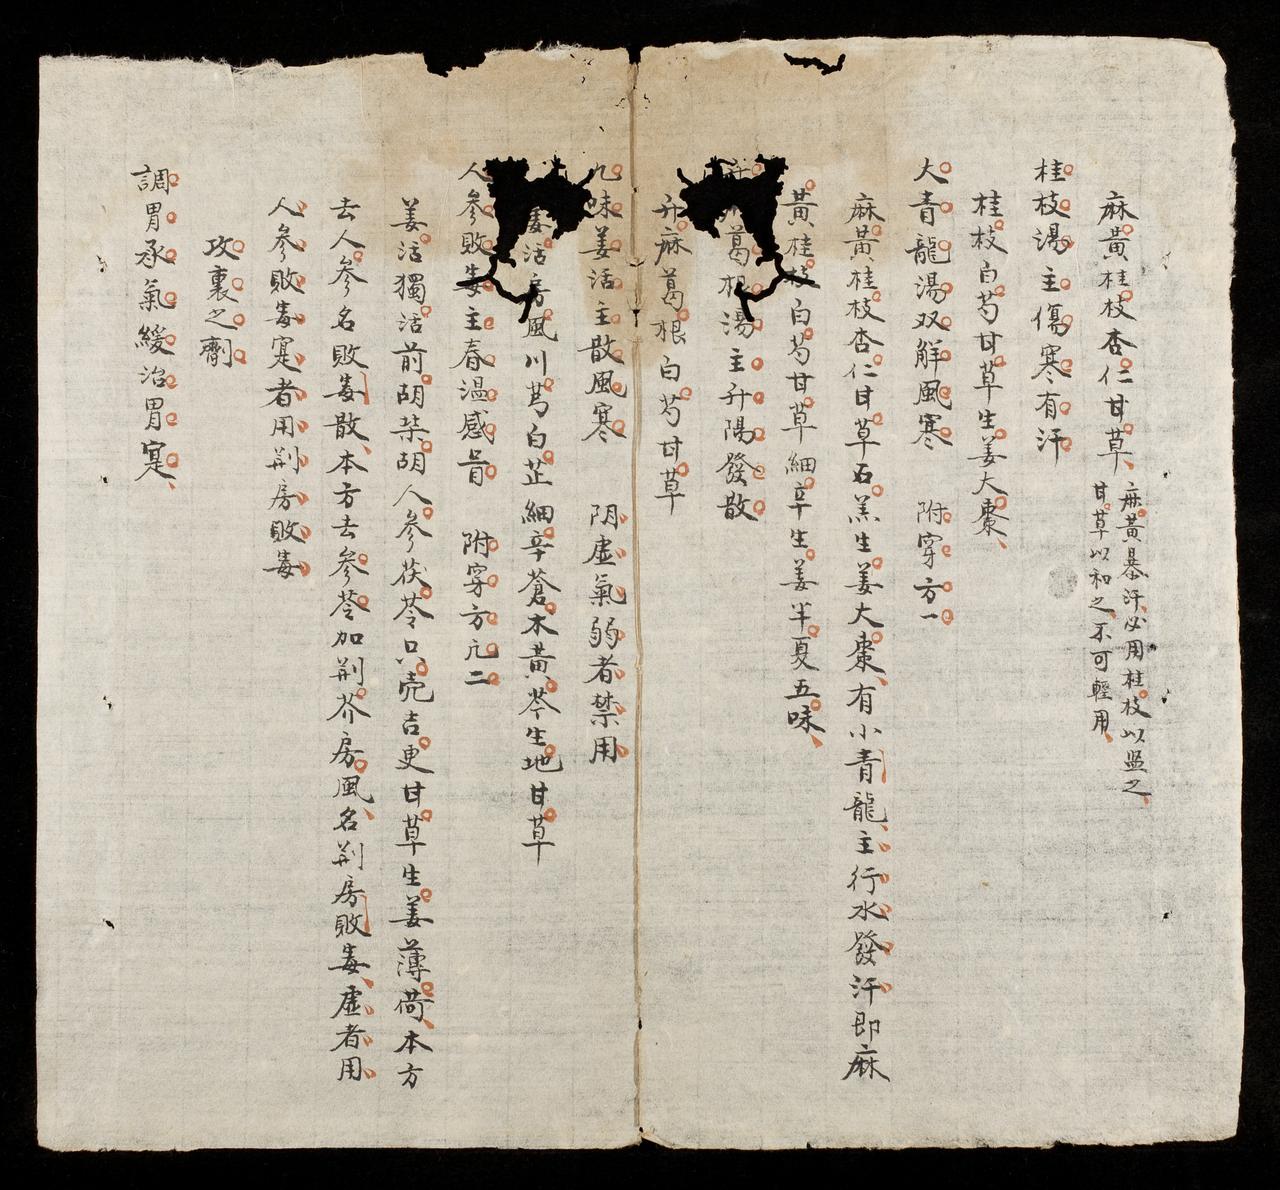 麻黃桂枝杏仁甘草 麻黃暴汗必用桂枝以監之
甘草以和之不可輕用
桂枝湯主傷寒有汗
桂枝白芍甘草生姜大棗
大青龍湯双觧風寒 附穿方一
麻黃桂枝杏仁甘草石羔生姜大棗有小青龍主行水發汗即麻
黃桂枝白芍甘草細辛生姜半夏五味
葛根湯主升陽發散
升麻葛根白芍甘草
九味羌活主散風寒 阴虛氣弱者禁用
羌活房風川芎白芷細辛蒼木黃芩生地甘草
人參敗毒主春溫感冒 附穿方凢二
羌活獨活前胡柴胡人參茯苓只壳吉更甘草生姜薄荷本方
去人參名敗毒散本方去參苓加荆芥房風名荆房敗毒虛者用
人參敗毒寔者用荆房敗毒
攻裏之劑
調胃承氣緩治胃寔